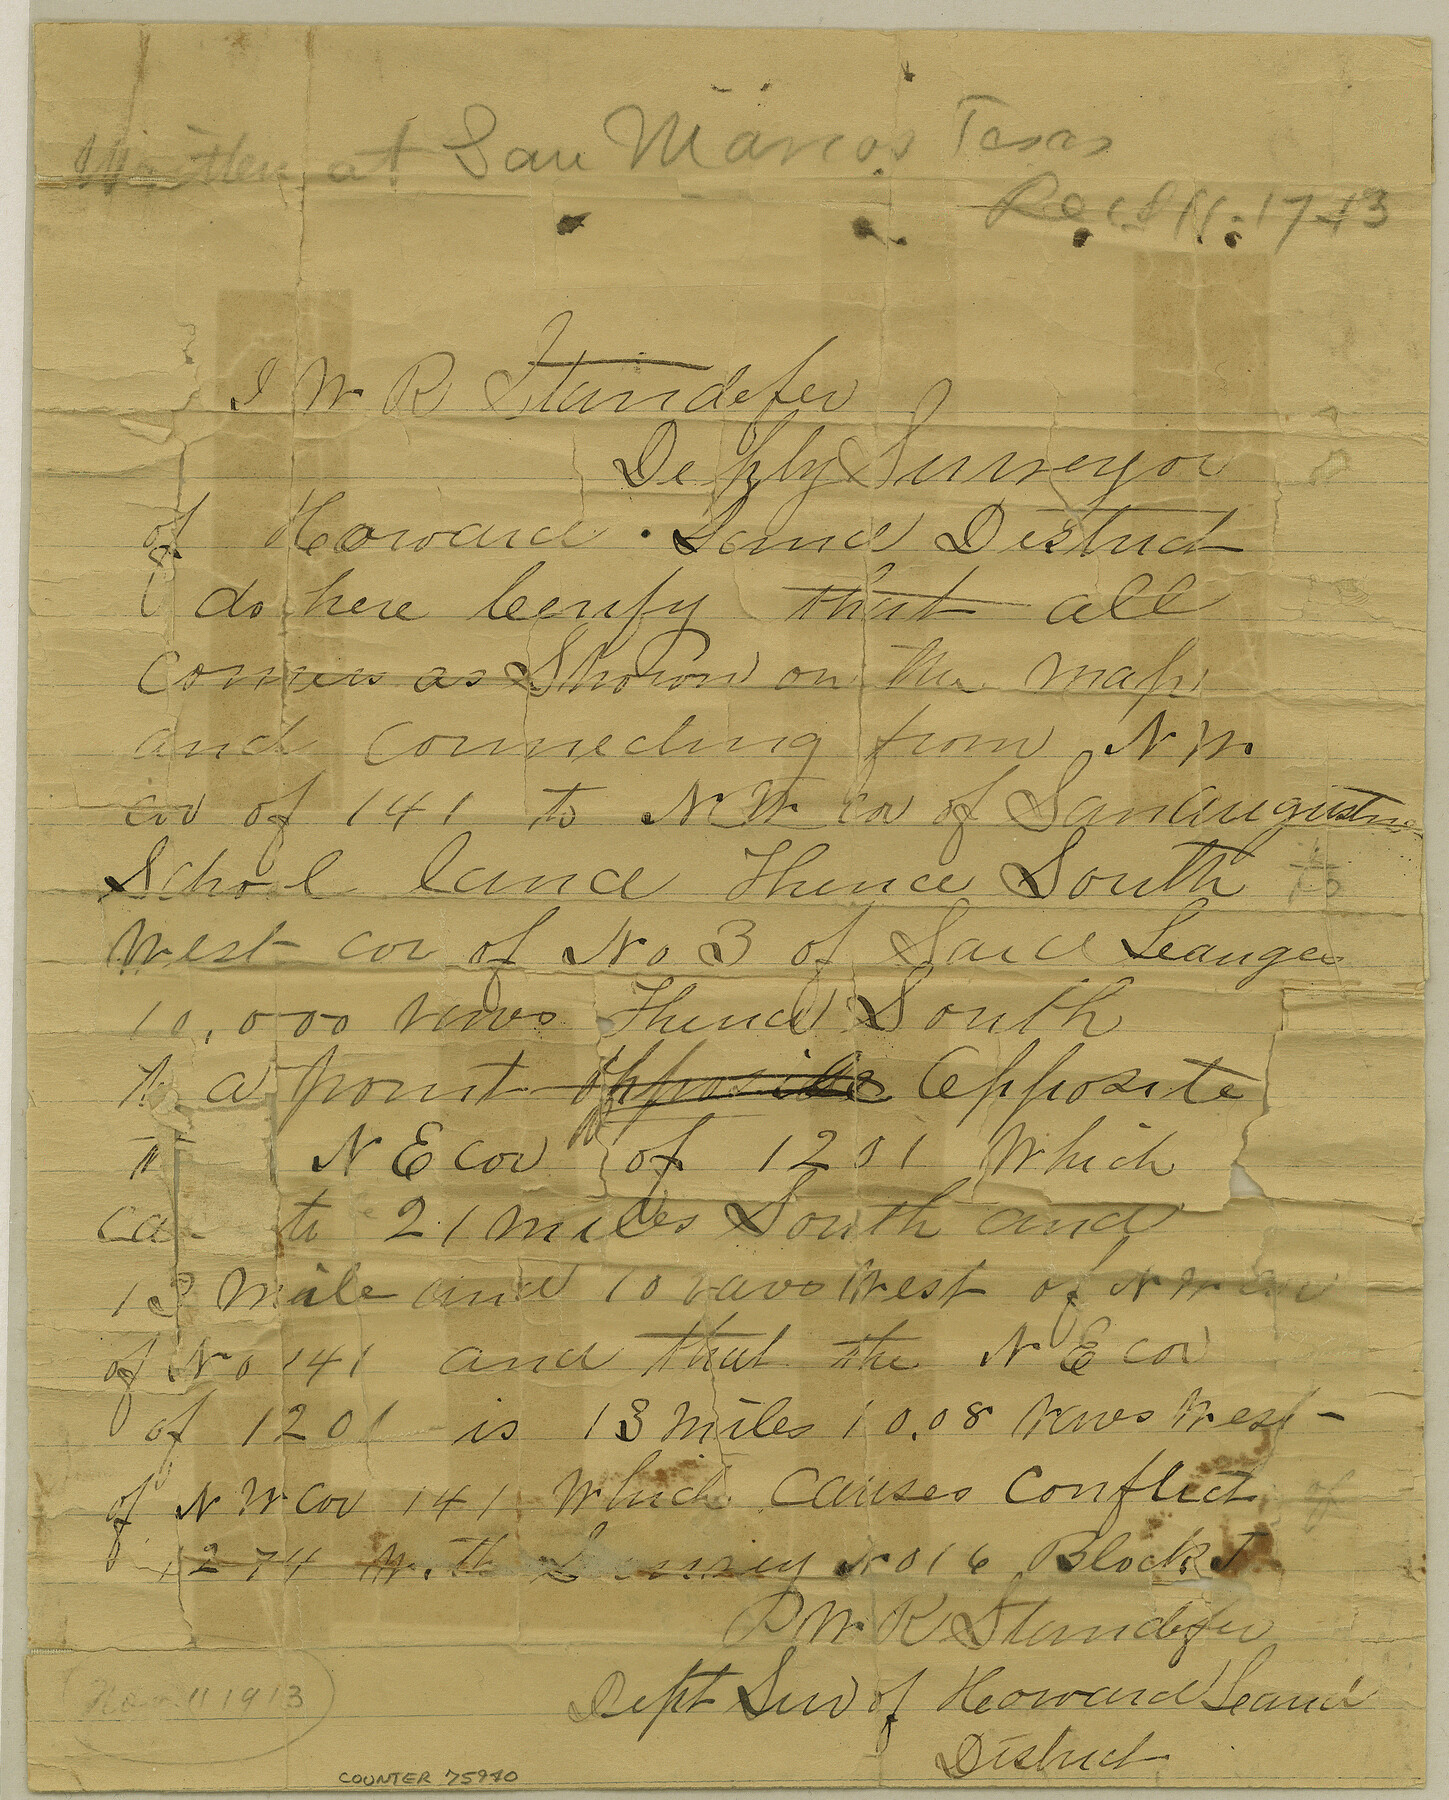 Written at San Marcos Texas
Recd 11-17-13
I W R Standefer
Depty Surveyor
of Howard Land District
do here Cerify that all
Corners as Shown on the map
and Connecting from N W
cor of 141 to N W cor of Sanaugustine
School land Thence South to
West cor of No 3 of Said Leauges
10,000 varas Thence South
to a point opposite Opposite
N E cor of 1201 Which
to 21 miles South and
13 mile and 10 varas West of N W cor
of No 141 and that the N E cor
of 1201 is 13 miles 10.08 varas West
of N W Cor 141 Which Causes Conflict of
1274 With Survey No 16 Block T
W R Standefer
Dept Sur of Howard Land
District
Nov 11 1913
COUNTER 75940